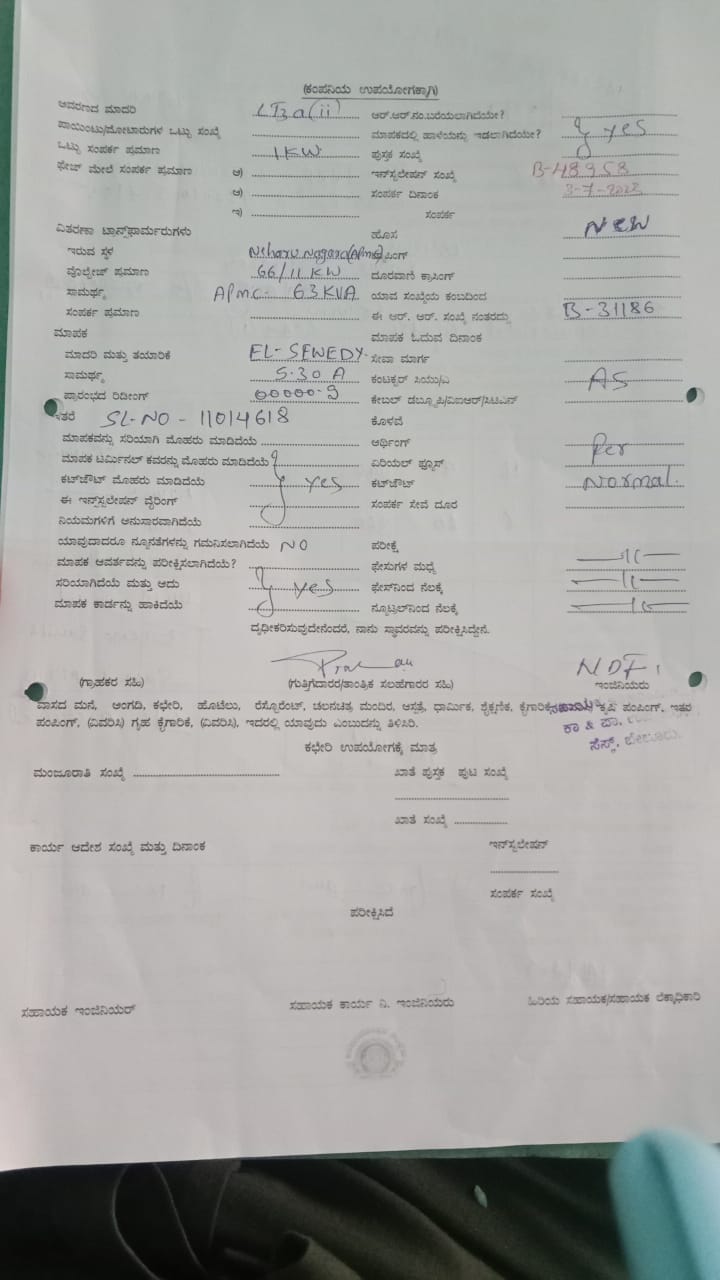 (ಕಂಪನಿಯ ಉಪಯೋಗಕ್ಕಾಗಿ)
ಆವರಣದ ಮಾದರಿ LT3a(ii) ಆರ್.ಆರ್.ನಂ.ಬರೆಯಲಾಗಿದೆಯೇ?
ಪಾಯಿಂಟು/ಮೋಟಾರುಗಳ ಒಟ್ಟು ಸಂಖ್ಯೆ ಮಾಪಕದಲ್ಲಿ ಹಾಳೆಯನ್ನು ಇಡಲಾಗಿದೆಯೇ? yes
ಒಟ್ಟು ಸಂಪರ್ಕ ಪ್ರಮಾಣ 1KW ಪುಸ್ತಕ ಸಂಖ್ಯೆ
ಫೇಜ್ ಮೇಲೆ ಸಂಪರ್ಕ ಪ್ರಮಾಣ ಅ) ಇನ್‌ಸ್ಟಲೇಷನ್ ಸಂಖ್ಯೆ B-48958
ಆ) ಸಂಪರ್ಕ ದಿನಾಂಕ 3-7-2022
ಇ) ಸಂಪರ್ಕ
ವಿತರಣಾ ಟ್ರಾನ್ಸ್‌ಫಾರ್ಮರುಗಳು ಹೊಸ New
ಇರುವ ಸ್ಥಳ Neharu Nagara(APmc)
ವೋಲ್ಟೇಜ್ ಪ್ರಮಾಣ 66/11 KW ದೂರವಾಣಿ ಕ್ರಾಸಿಂಗ್
ಸಾಮರ್ಥ್ಯ APmc. 63 KVA ಯಾವ ಸಂಖ್ಯೆಯ ಕಂಬದಿಂದ
ಸಂಪರ್ಕ ಪ್ರಮಾಣ ಈ ಆರ್. ಆರ್. ಸಂಖ್ಯೆ ನಂತರದ್ದು B-31186
ಮಾಪಕ ಮಾಪಕ ಓದುವ ದಿನಾಂಕ
ಮಾದರಿ ಮತ್ತು ತಯಾರಿಕೆ EL-SEWEDY ಸೇವಾ ಮಾರ್ಗ
ಸಾಮರ್ಥ್ಯ 5-30 A ಕಂಟಕ್ಟರ್ ಸಿಯು/ಎ AS
ಪ್ರಾರಂಭದ ರಿಡೀಂಗ್ 00000.9 ಕೇಬಲ್ ಡಬ್ಲ್ಯೂಪಿ/ವಿಐಆರ್/ಸಿಟಿಎನ್
ಇತರೆ SL-NO - 11014618 ಕೊಳವೆ
ಮಾಪಕವನ್ನು ಸರಿಯಾಗಿ ಮೊಹರು ಮಾಡಿದೆಯೆ ಆರ್ಥಿಂಗ್ Per
ಮಾಪಕ ಟರ್ಮಿನಲ್ ಕವರನ್ನು ಮೊಹರು ಮಾಡಿದೆಯೆ ಏರಿಯಲ್ ಫ್ಯೂಸ್
ಕಟ್‌ಔಟ್ ಮೊಹರು ಮಾಡಿದೆಯೆ yes ಕಟ್‌ಔಟ್ Normal.
ಈ ಇನ್ಸ್‌ಸ್ಟಲೇಷನ ವೈರಿಂಗ್ ಸಂಪರ್ಕ ಸೇವೆ ದೂರ
ನಿಯಮಗಳಿಗೆ ಅನುಸಾರವಾಗಿದೆಯೆ
ಯಾವುದಾದರೂ ನ್ಯೂನತೆಗಳನ್ನು ಗಮನಿಸಲಾಗಿದೆಯೆ NO ಪರೀಕ್ಷೆ
ಮಾಪಕ ಆವರ್ತವನ್ನು ಪರೀಕ್ಷಿಸಲಾಗಿದೆಯೆ? ಫೇಸುಗಳ ಮಧ್ಯೆ
ಸರಿಯಾಗಿದೆಯೆ ಮತ್ತು ಆದು yes ಫೇಸ್‌ನಿಂದ ನೆಲಕ್ಕೆ
ಮಾಪಕ ಕಾರ್ಡನ್ನು ಹಾಕಿದೆಯೆ ನ್ಯೂಟ್ರಲ್‌ನಿಂದ ನೆಲಕ್ಕೆ
ದೃಢೀಕರಿಸುವುದೇನೆಂದರೆ, ನಾನು ಸ್ಥಾವರವನ್ನು ಪರೀಕ್ಷಿಸಿದ್ದೇನೆ.
(ಗ್ರಾಹಕರ ಸಹಿ) (ಗುತ್ತಿಗೆದಾರರ/ತಾಂತ್ರಿಕ ಸಲಹೆಗಾರರ ಸಹಿ) ಇಂಜಿನಿಯರು
ವಾಸದ ಮನೆ, ಅಂಗಡಿ, ಕಛೇರಿ, ಹೊಟೇಲು, ರೆಸ್ಟೋರೆಂಟ್, ಚಲನಚಿತ್ರ ಮಂದಿರ, ಆಸ್ಪತ್ರೆ, ಧಾರ್ಮಿಕ, ಶೈಕ್ಷಣಿಕ, ಕೈಗಾರಿಕೆ, ಕೃಷಿ ಪಂಪಿಂಗ್, ಇತರ
ಪಂಪಿಂಗ್, (ವಿವರಿಸಿ) ಗೃಹ ಕೈಗಾರಿಕೆ, (ವಿವರಿಸಿ), ಇದರಲ್ಲಿ ಯಾವುದು ಎಂಬುದನ್ನು ತಿಳಿಸಿರಿ.
ಕಾ & ಪಾ.
ಸೆಸ್ಕ್, ಬೇಲೂರು.
ಕಛೇರಿ ಉಪಯೋಗಕ್ಕೆ ಮಾತ್ರ
ಮಂಜೂರಾತಿ ಸಂಖ್ಯೆ ಖಾತೆ ಪುಸ್ತಕ ಪುಟ ಸಂಖ್ಯೆ
ಖಾತೆ ಸಂಖ್ಯೆ
ಕಾರ್ಯ ಆದೇಶ ಸಂಖ್ಯೆ ಮತ್ತು ದಿನಾಂಕ ಇನ್‌ಸ್ಟಲೇಷನ್
ಸಂಪರ್ಕ ಸಂಖ್ಯೆ
ಪರೀಕ್ಷಿಸಿದೆ
ಸಹಾಯಕ ಇಂಜಿನಿಯರ್ ಸಹಾಯಕ ಕಾರ್ಯ ನಿ. ಇಂಜಿನಿಯರು ಹಿರಿಯ ಸಹಾಯಕ/ಸಹಾಯಕ ಲೆಕ್ಕಾಧಿಕಾರಿ